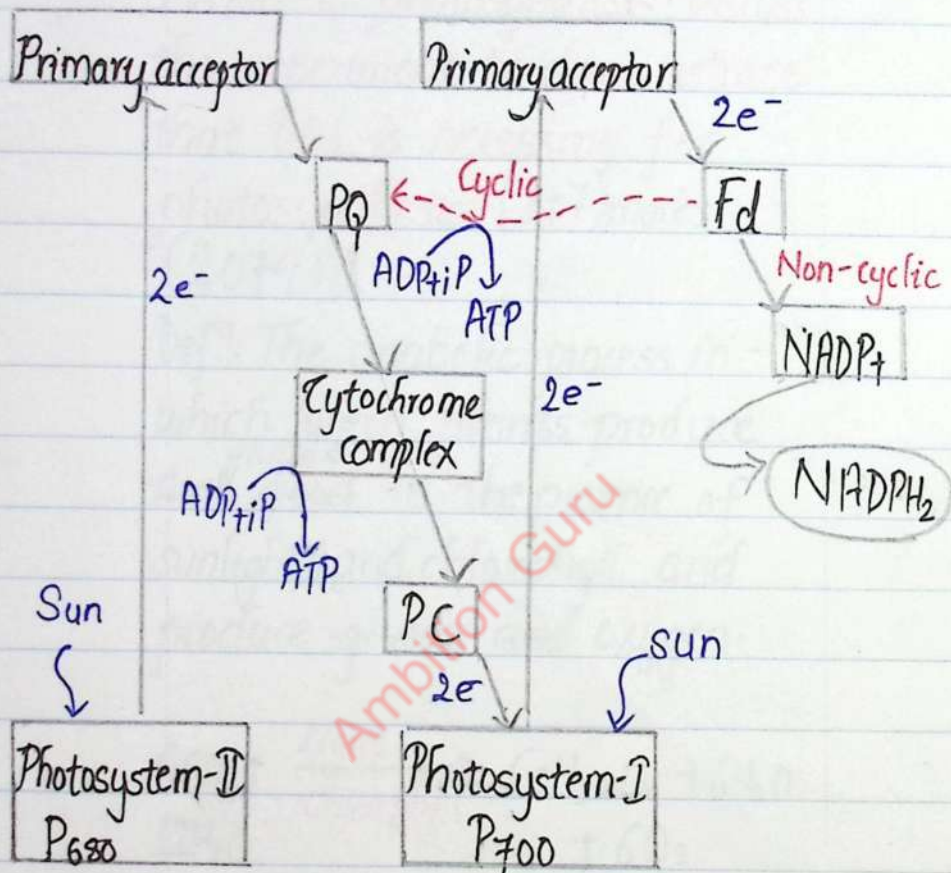 Primary acceptor
Primary acceptor
2e⁻
PQ
Cyclic
Fd
ADP+iP
ATP
Non-cyclic
2e⁻
NADP+
Cytochrome
complex
2e⁻
NADPH₂
ADP+iP
ATP
Sun
PC
Sun
2e
Ambition Guru
Photosystem-II
P680
Photosystem-I
P700